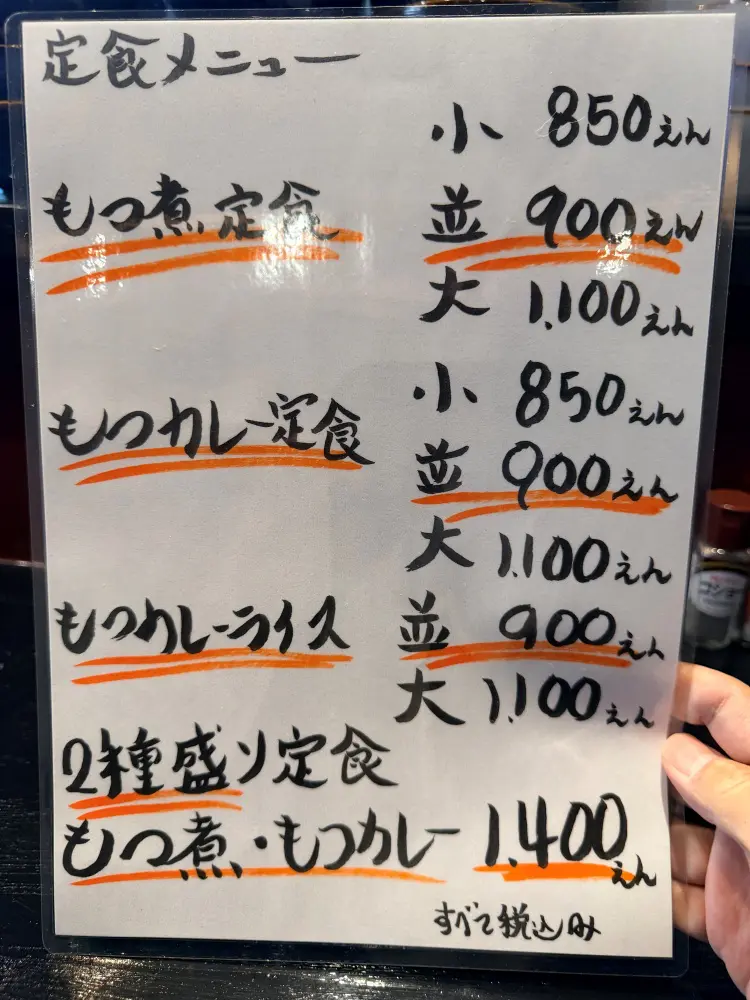 定食メニュー
小 850えん
もつ煮定食 並 900えん
大 1,100えん
小 850えん
もつカレー定食 並 900えん
大 1,100えん
もつカレーライス 並 900えん
大 1,100えん
2種盛り定食
もつ煮・もつカレー 1,400えん
すべて税込み